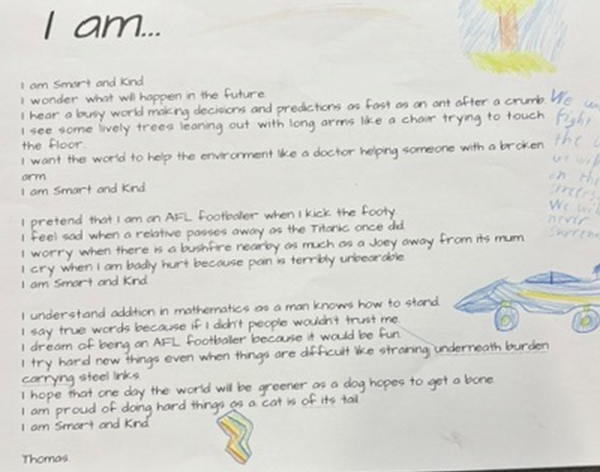 I am...
I am Smart and Kind
I wonder what will happen in the future
I hear a busy world making decisions and predictions as fast as an ant after a crumb.
I see some lively trees leaning out with long arms like a chair trying to touch
the floor.
I want the world to help the environment like a doctor helping someone with a broken
arm
I am Smart and Kind
I pretend that I am an AFL footballer when I kick the footy
I feel sad when a relative passes away as the Titanic once did
I worry when there is a bushfire nearby as much as a Joey away from its mum
I cry when I am badly hurt because pain is terribly unbearable
I am Smart and Kind
I understand addition in mathematics as a man knows how to stand
I say true words because if I didn't people wouldn't trust me
I dream of being an AFL footballer because it would be fun
I try hard new things even when things are difficult like straining underneath burden
carrying steel links
I hope that one day the world will be greener as a dog hopes to get a bone
I am proud of doing hard things as a cat is of its tail
I am Smart and Kind
Thomas
We
fight
the
we
on the
We
never